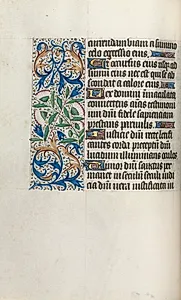 currendam viam a summo
celo egressio eius
Et occursus eius usqꝫ ad
summū eius nec est qui se ab
scondat a calore eius
Lex domini immaculata
convertens aīas testimoni
um dñi fidele sapientiam
prestans parvulis
Iusticie dñi recte letifi
cantes corda preceptū dñi
lucidum illuminans oculos
Timor domini sanctus per
manet in seculum seculi iudi
cia domini vera iustificata in